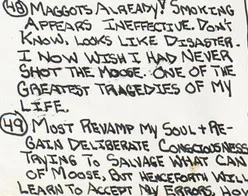 48 MAGGOTS ALREADY! SMOKING
APPEARS INEFFECTIVE. DON'T
KNOW, LOOKS LIKE DISASTER.
I NOW WISH I HAD NEVER
SHOT THE MOOSE. ONE OF THE
GREATEST TRAGEDIES OF MY
LIFE.
49 MOST REVAMP MY SOUL + RE-
GAIN DELIBERATE CONSCIOUSNESS
TRYING TO SALVAGE WHAT CAN
OF MOOSE, BUT HENCEFORTH WILL
LEARN TO ACCEPT MY ERRORS, HOW